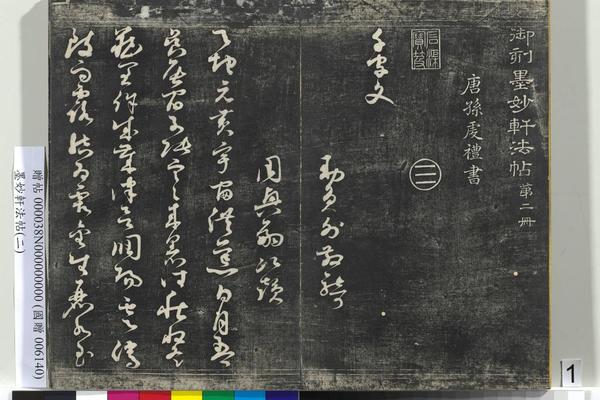 御刻墨妙軒法帖 第二冊
唐孫虔禮書
三
石渠寶笈
千字文
敕員外散騎
周興嗣次韻
天地元黃宇宙洪荒日月盈
昃辰宿列張寒來暑往秋收冬
藏閏餘成歲律呂調陽雲騰
致雨露結為霜金生麗水玉
贈帖 000038N000000000 (國贈 006140)
墨妙軒法帖(二)
1